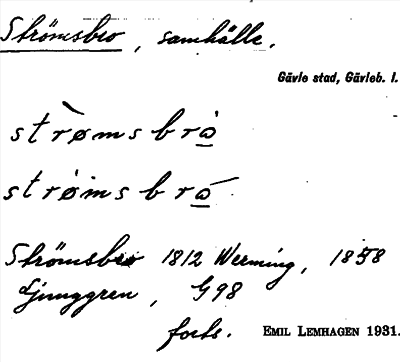 Strömsbro, samhälle.
Gävle stad, Gävleb. l.
strø̀msbrò̲
strø̀msbrō̲
Strömsbro 1812 Werming, 1858
Ljunggren, G98
forts. EMIL LEMHAGEN 1931.